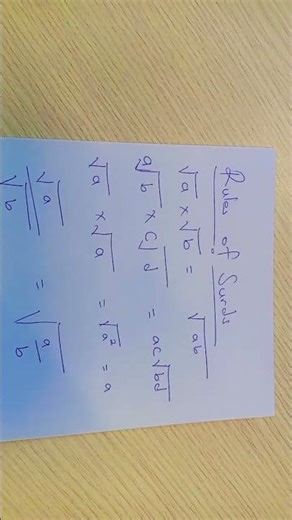 Rules of Surds
√a × √b = √ab
a√b × c√d = ac√bd
√a × √a = √a² = a
√a/√b = √a/b